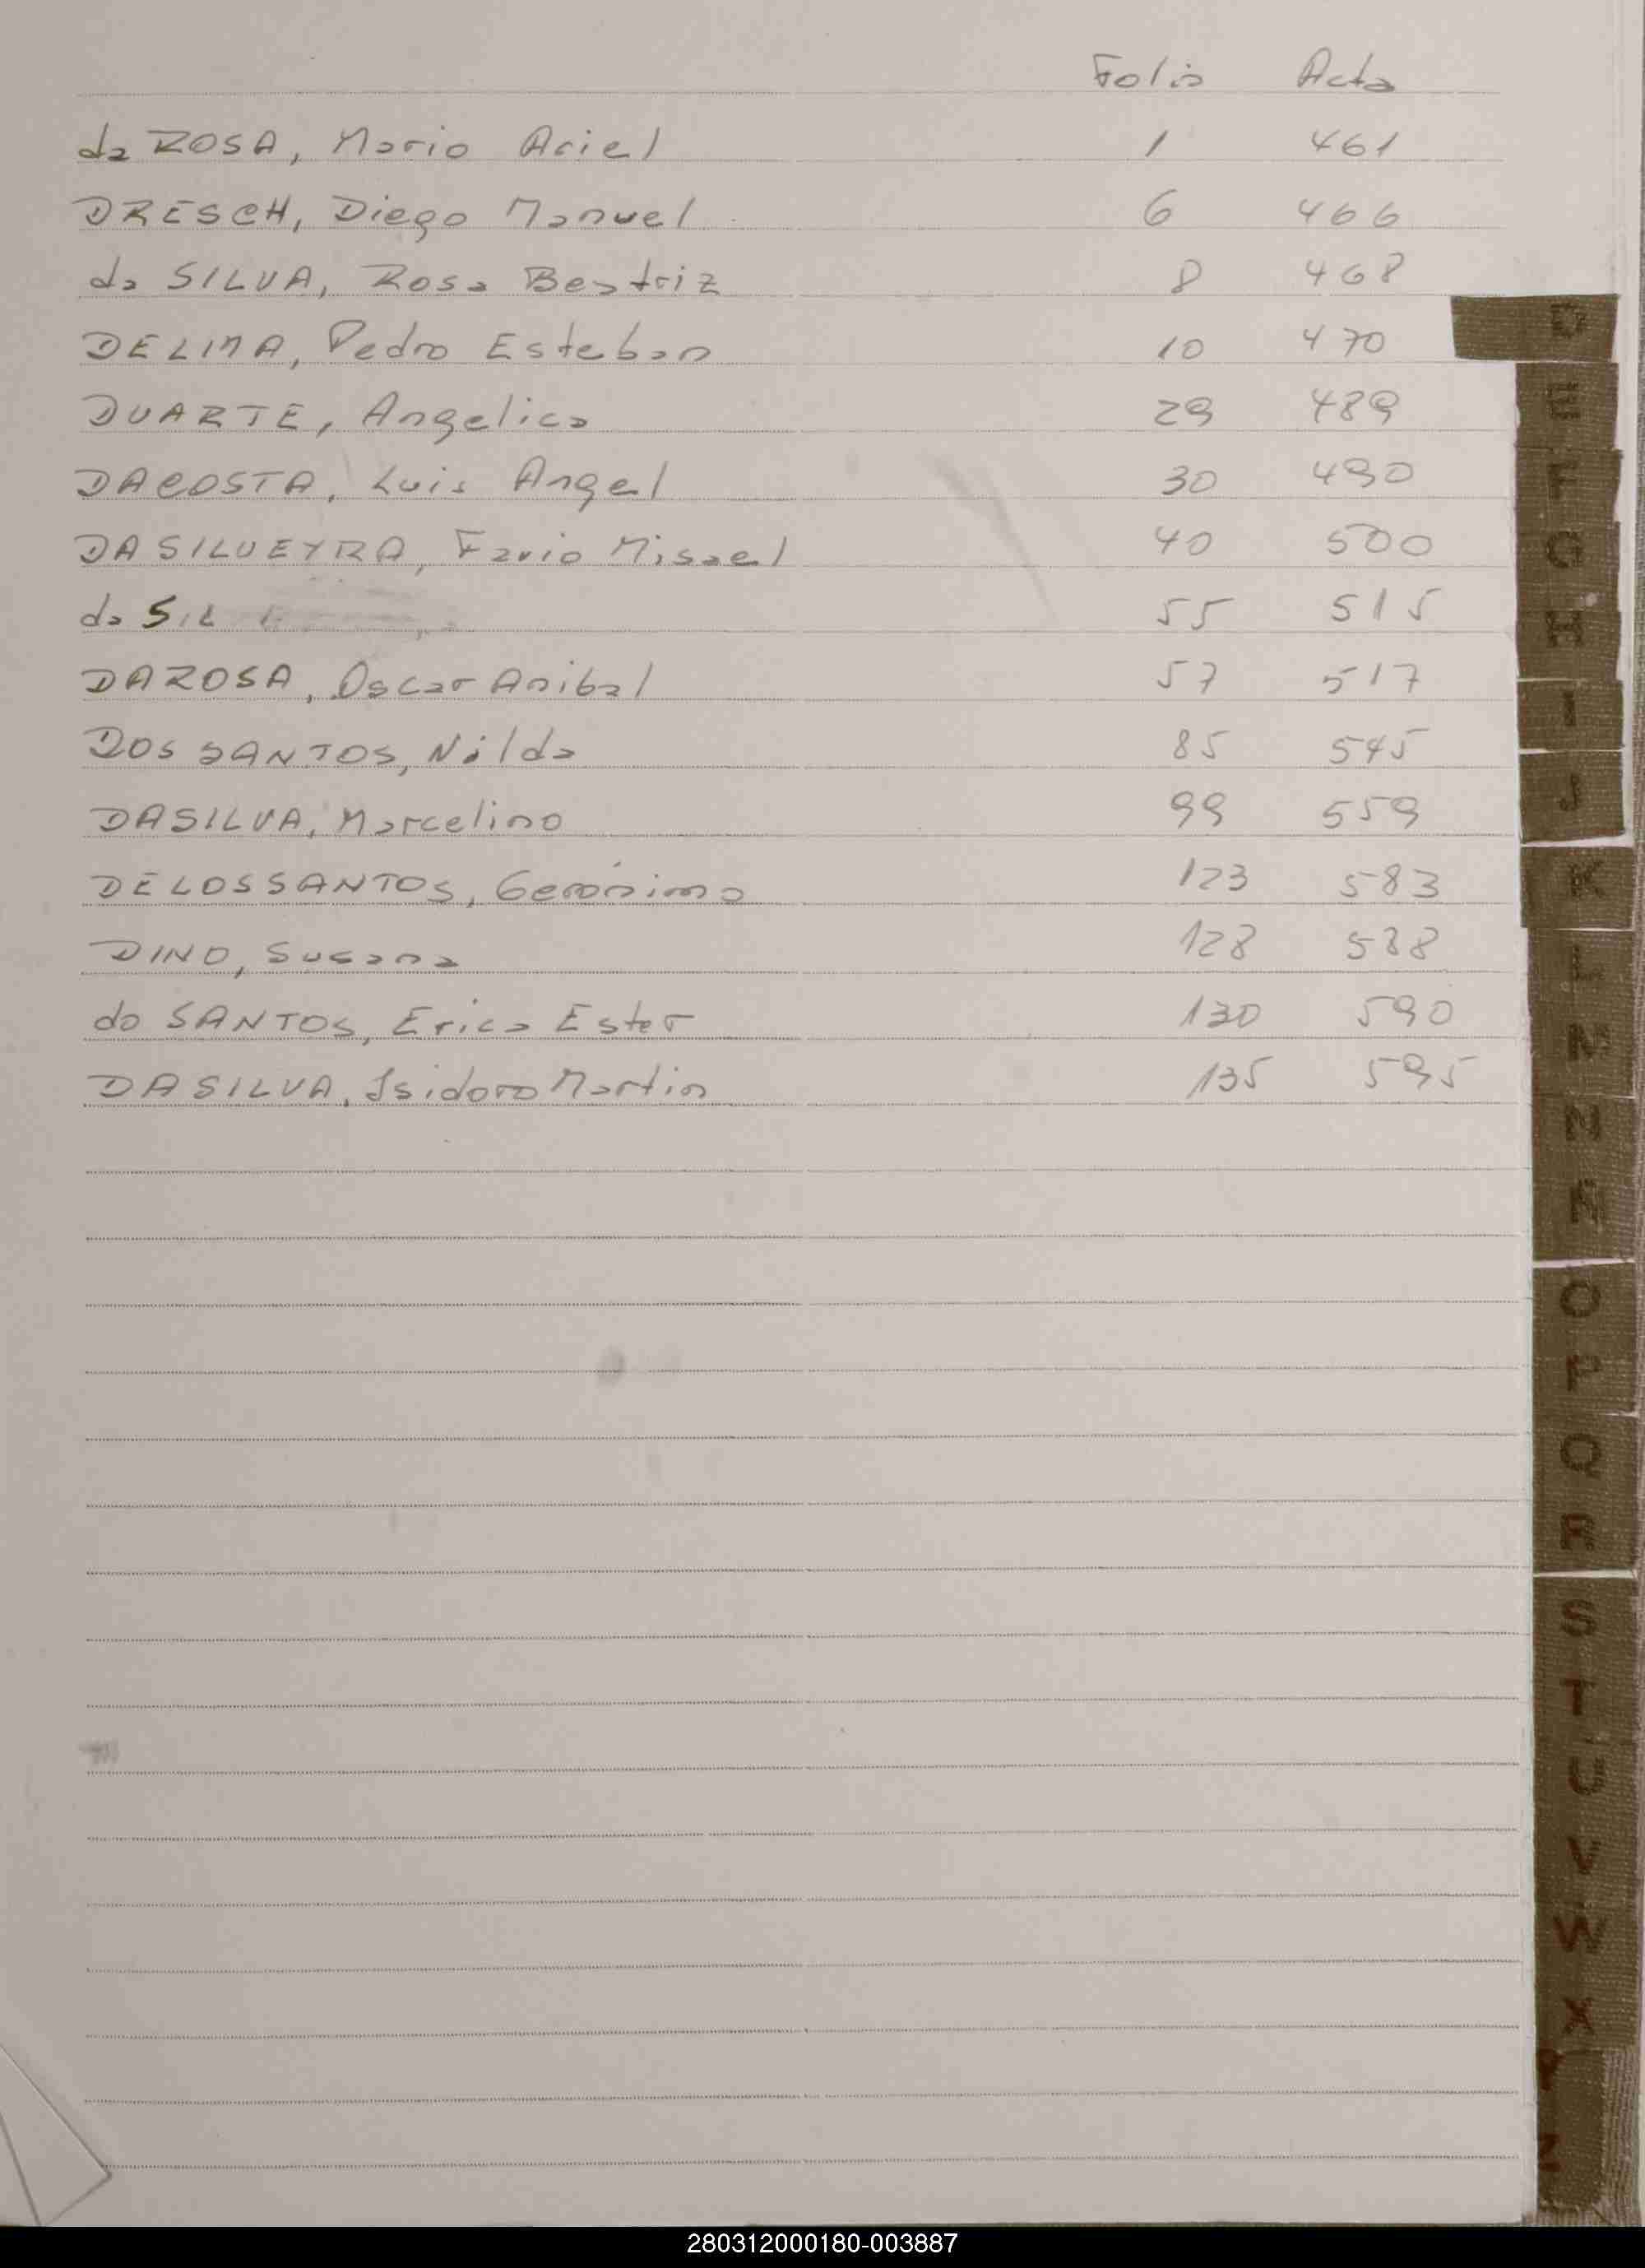 Folio Acta
da ROSA, Mario Ariel 1 461
DRESCH, Diego Manuel 6 466
da SILVA, Rosa Beatriz 8 468
DELIMA, Pedro Esteban 10 470
DUARTE, Angelica 29 489
DACOSTA, Luis Angel 30 490
DASILVEYRA, Favio Misael 40 500
da 55 515
DAROSA, Oscar Anibal 57 517
DOS SANTOS, Nilda 85 545
DASILVA, Marcelino 99 559
DELOSSANTOS, Gerónimo 123 583
DINO, Susana 128 588
do SANTOS, Erica Ester 130 590
DASILVA, Isidoro Martin 135 595
D
E
F
G
H
I
J
K
L
M
N
Ñ
O
P
Q
R
S
T
U
V
W
X
Y
Z
280312000180-003887